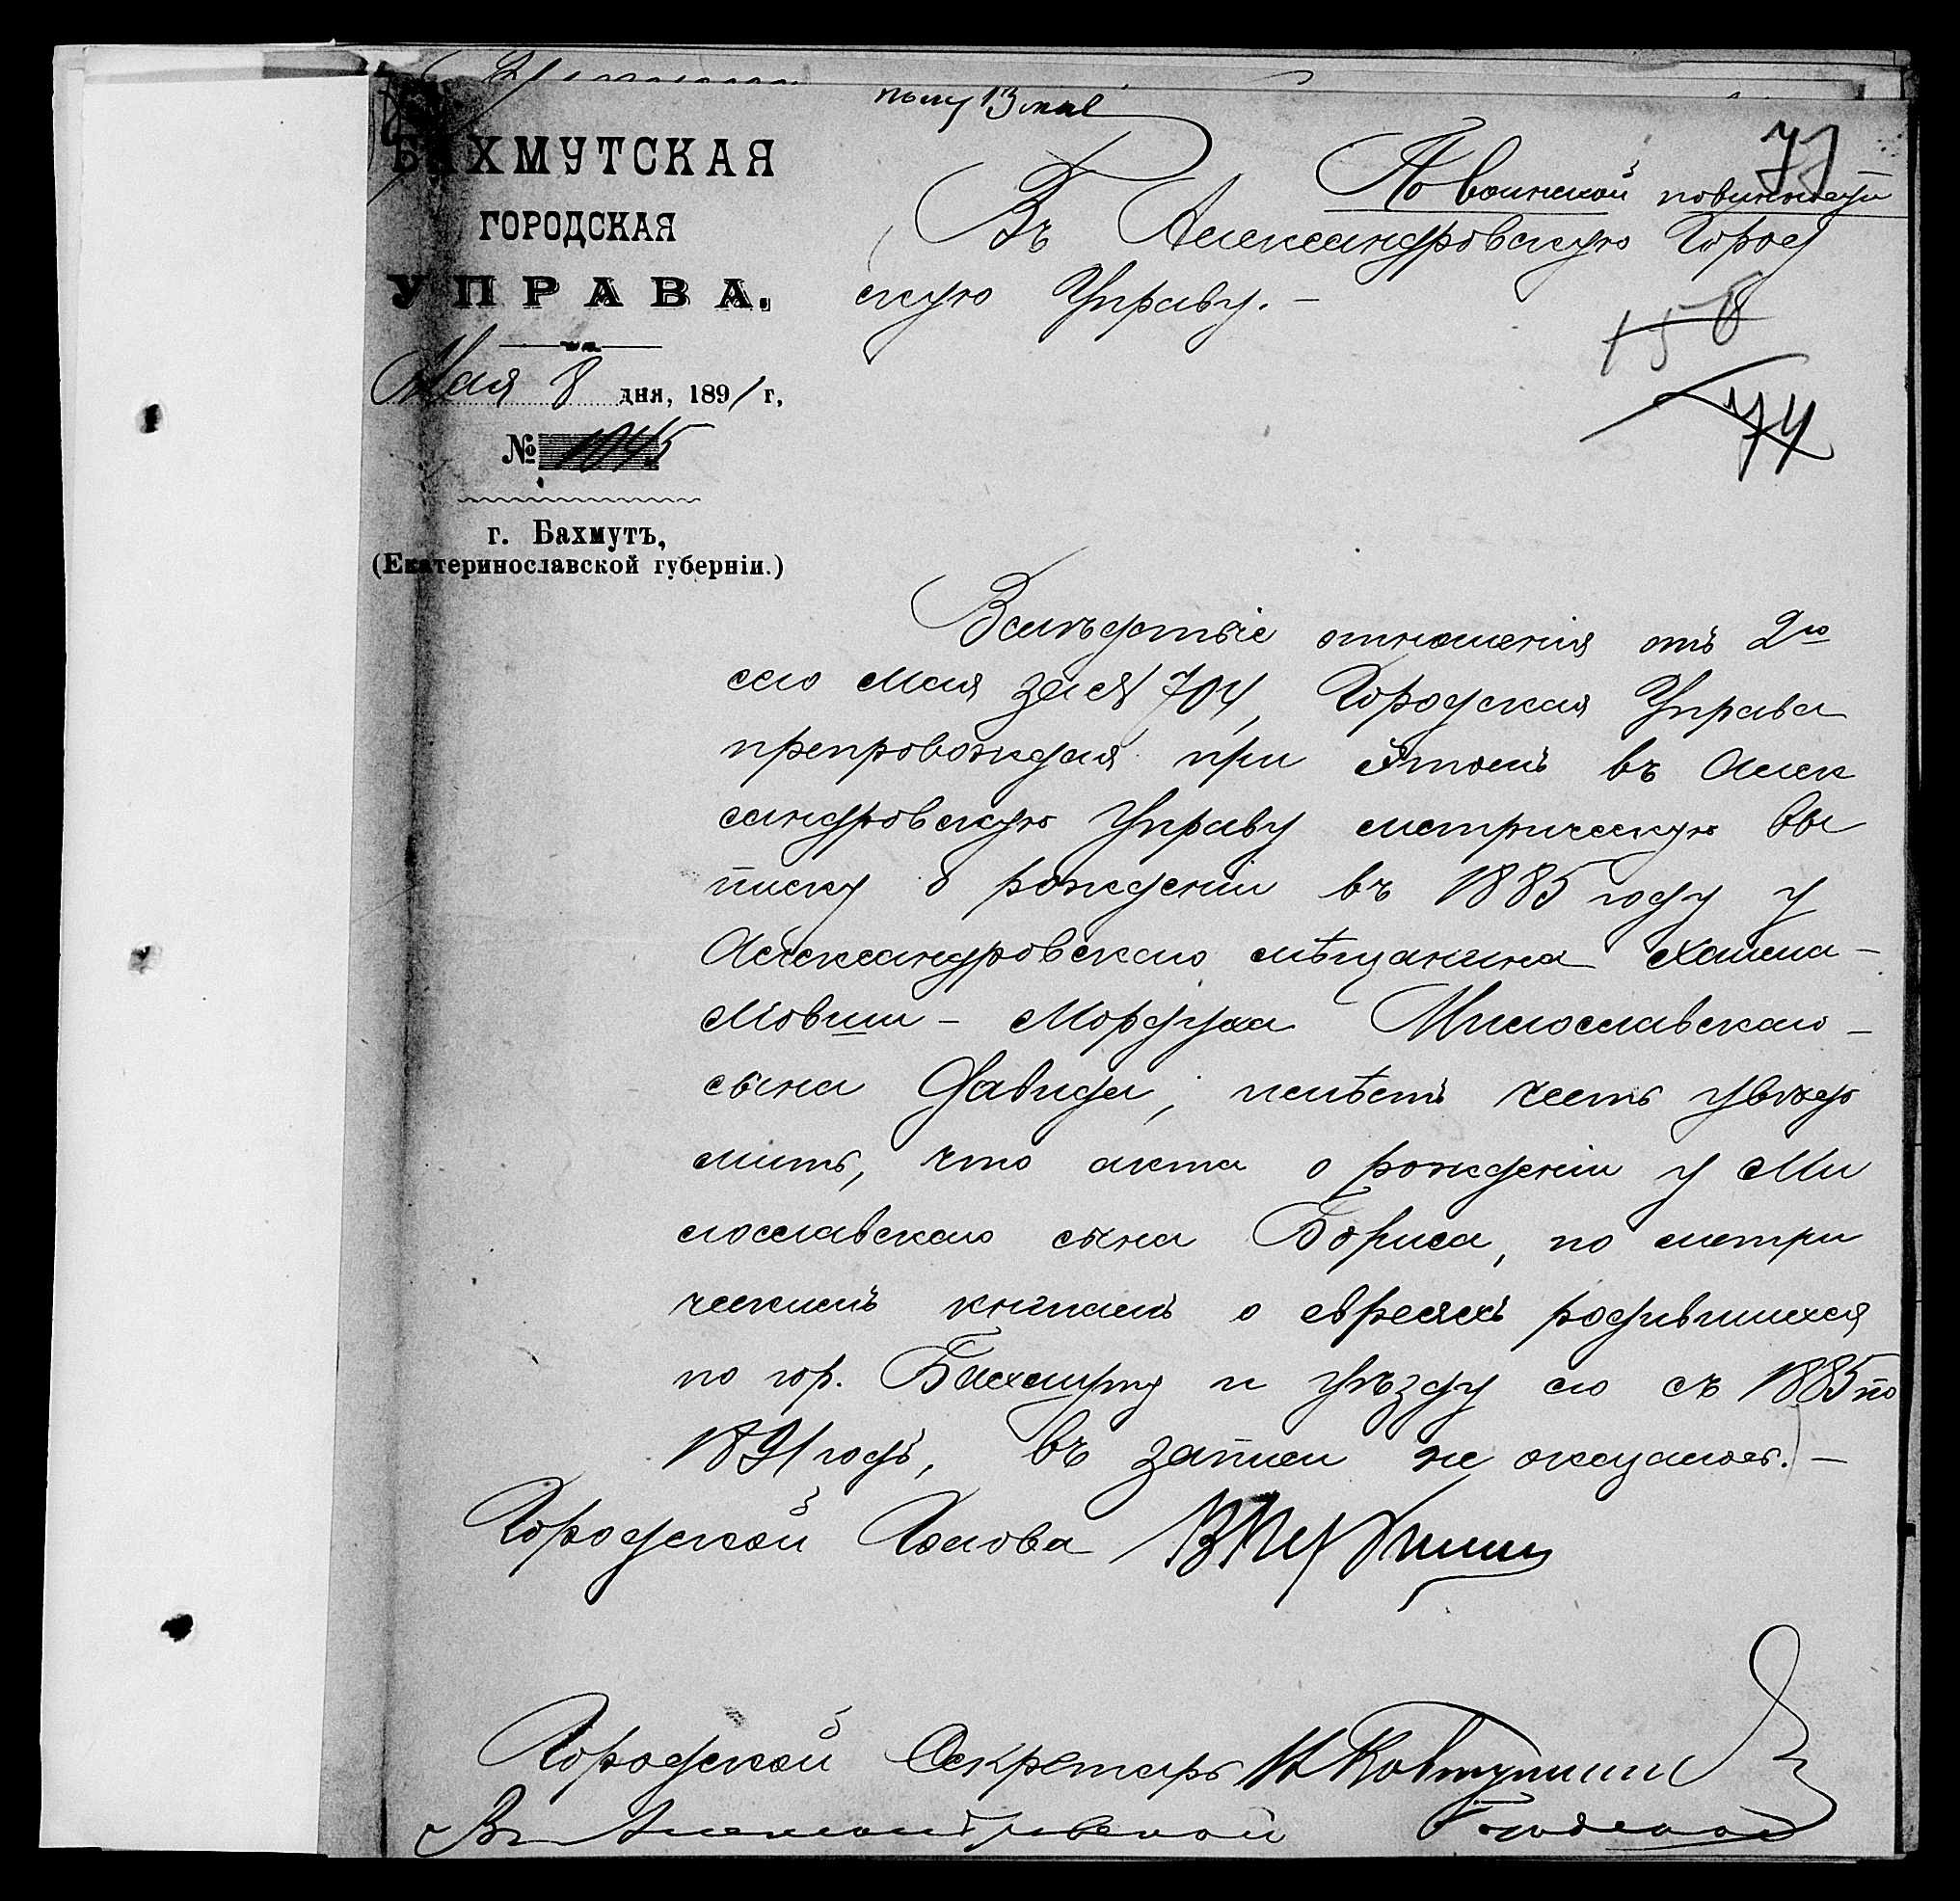 БАХМУТСКАЯ
ГОРОДСКАЯ
УПРАВА.
Мая 8 дня, 1891 г,
№ 1045
г. Бахмутъ,
(Екатеринославской губерніи.)
пол 13 мая
77
По воинской повинности
Въ Александровскую Город
скую Управу. –
158
74
Вслѣдствіе отношенія отъ 2го
сего Мая за № 704, Городская Управа
препровождая при этомъ въ Алек
сандровскую Управу метрическую вы
писку о рожденіи въ 1885 году у
Александровскаго мѣщанина Хаима –
Мовши – Мордуха Милославскаго –
сына Давида, имѣетъ честь увѣдо
мить, что акта о рожденіи у Ми
лославскаго сына Бориса, по метри
ческимъ книгамъ о евреяхъ родившихся
по гор. Бахмуту и уѣзду его съ 1885 по
1891 годъ, въ записи не оказалось. –
Городской Голова
Городской Секретарь Н Ковтунини
Въ Александровской Городской